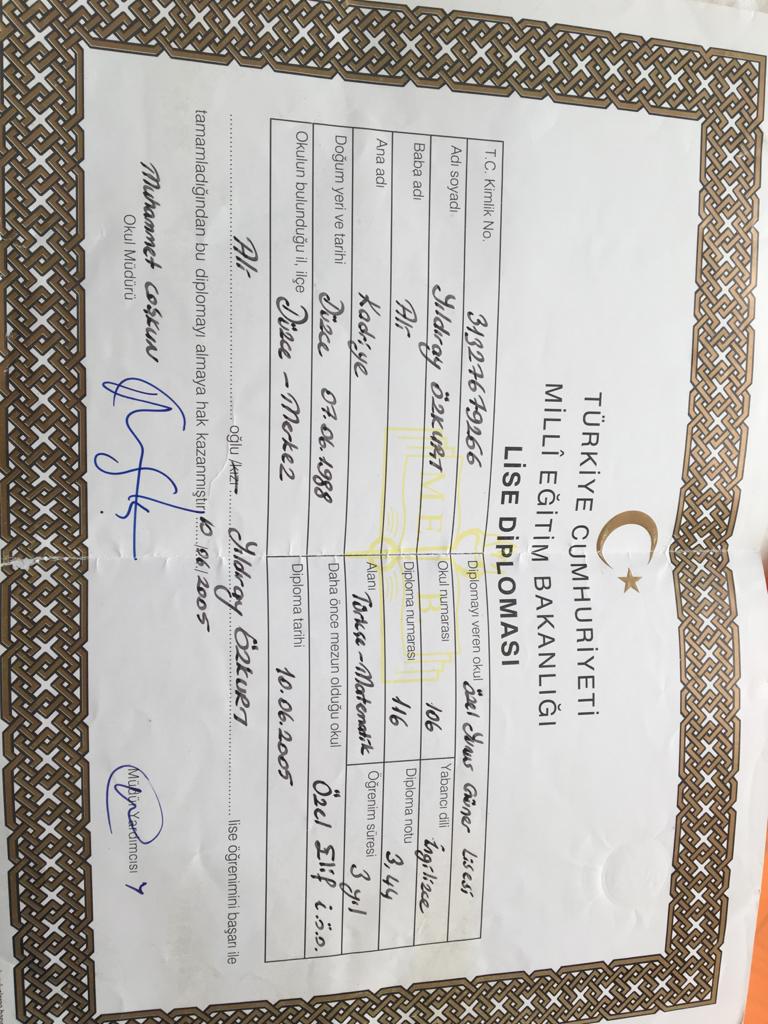 TÜRKİYE CUMHURİYETİ
MİLLÎ EĞİTİM BAKANLIĞI
LİSE DİPLOMASI
T.C. Kimlik No. 31327679266 Diplomayı veren okul Özel Güner Lisesi
Adı soyadı Yıldıray ÖZKURT Okul numarası 106 Yabancı dili İngilizce
Baba adı Ali Diploma numarası 116 Diploma notu 3,44
Ana adı Kadriye Alanı Türkçe-Matematik Öğrenim süresi 3 yıl
Doğum yeri ve tarihi Düzce 07.06.1988 Daha önce mezun olduğu okul Özel Elif i.ö.o.
Okulun bulunduğu il, ilçe Düzce - Merkez Diploma tarihi 10.06.2005
Ali oğlu /kızı Yıldıray ÖZKURT lise öğrenimini başarı ile
tamamladığından bu diplomayı almaya hak kazanmıştır. 10/06/2005
Muhammet COŞKUN
Okul Müdürü
Müdür Yardımcısı
MEB